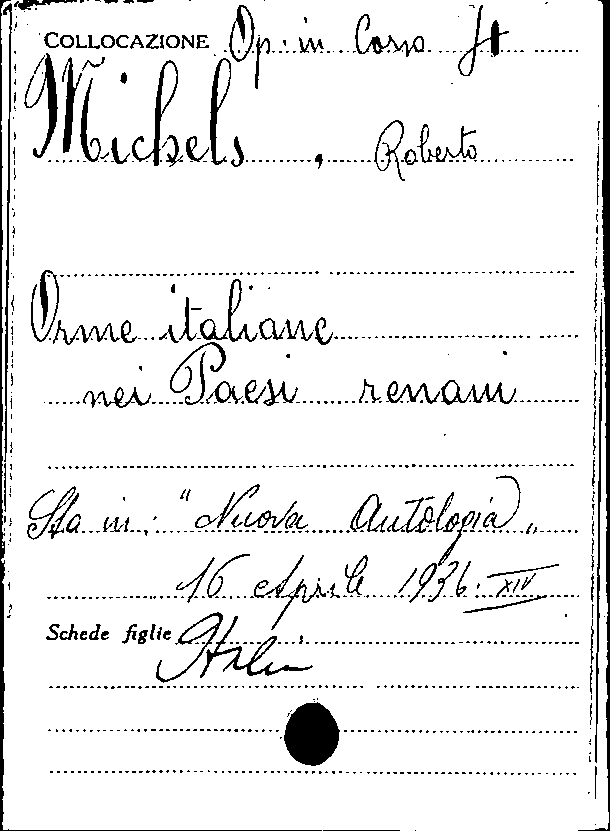 COLLOCAZIONE Op. in Corso
Michels, Roberto
Orme italiane
nei Paesi renani
Sta in: "Nuova Antologia"
16 Aprile 1936. XIV
Schede figlie